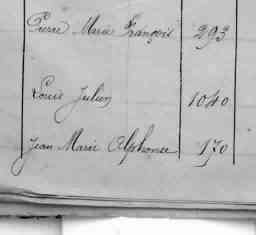 Pierre Marie François 293
Louis Julien 1040
Jean Marie Alphonse 170